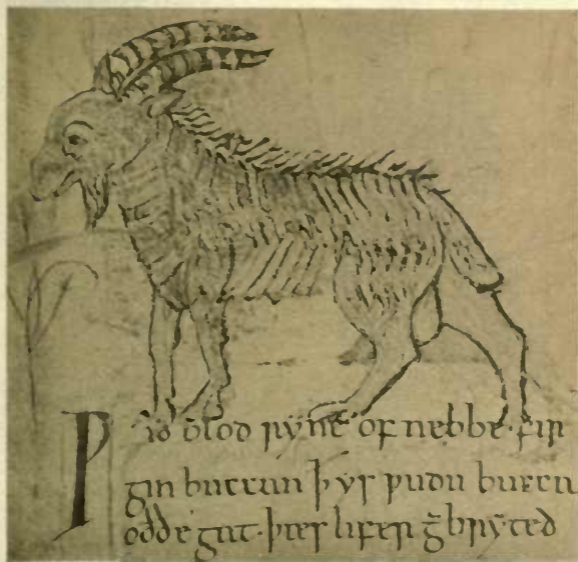 Ƿið blod ryne of nebbe· fir
gin buccan ꝥ ys ƿudu buccu
oððe gat· þæs lifer g̅bryted